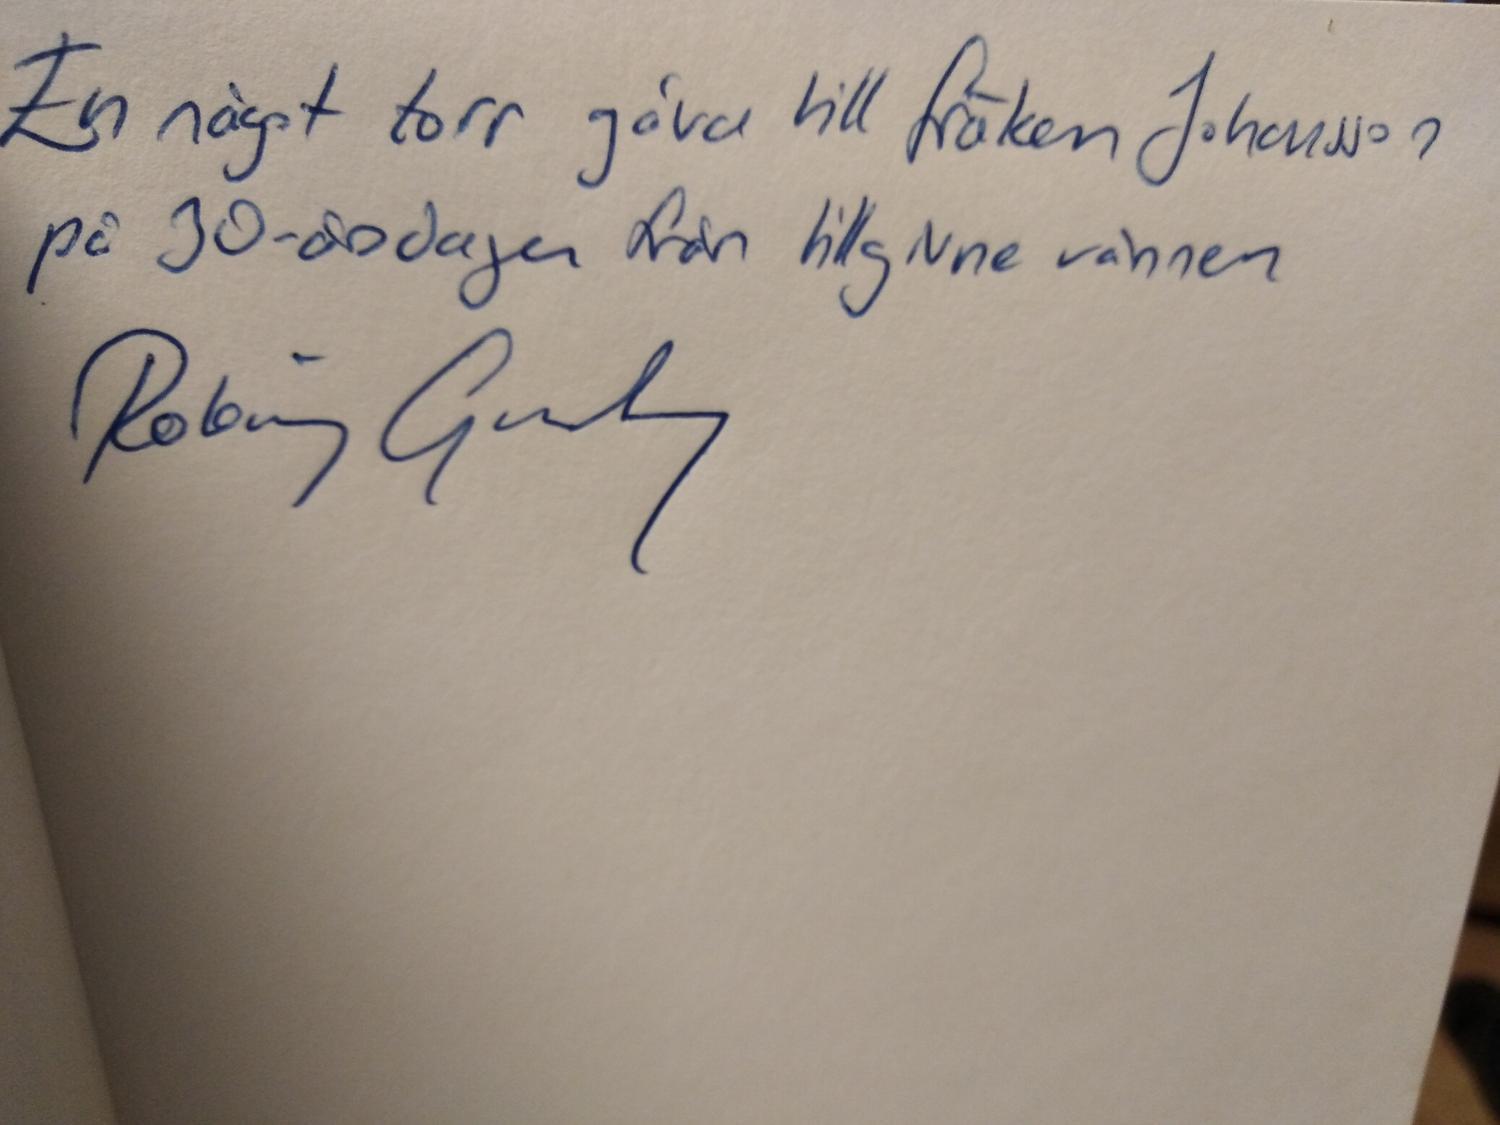 En någøt torr gåva till fröken Johansson
på 30-årsdagen från tillgivne vännen
Robin